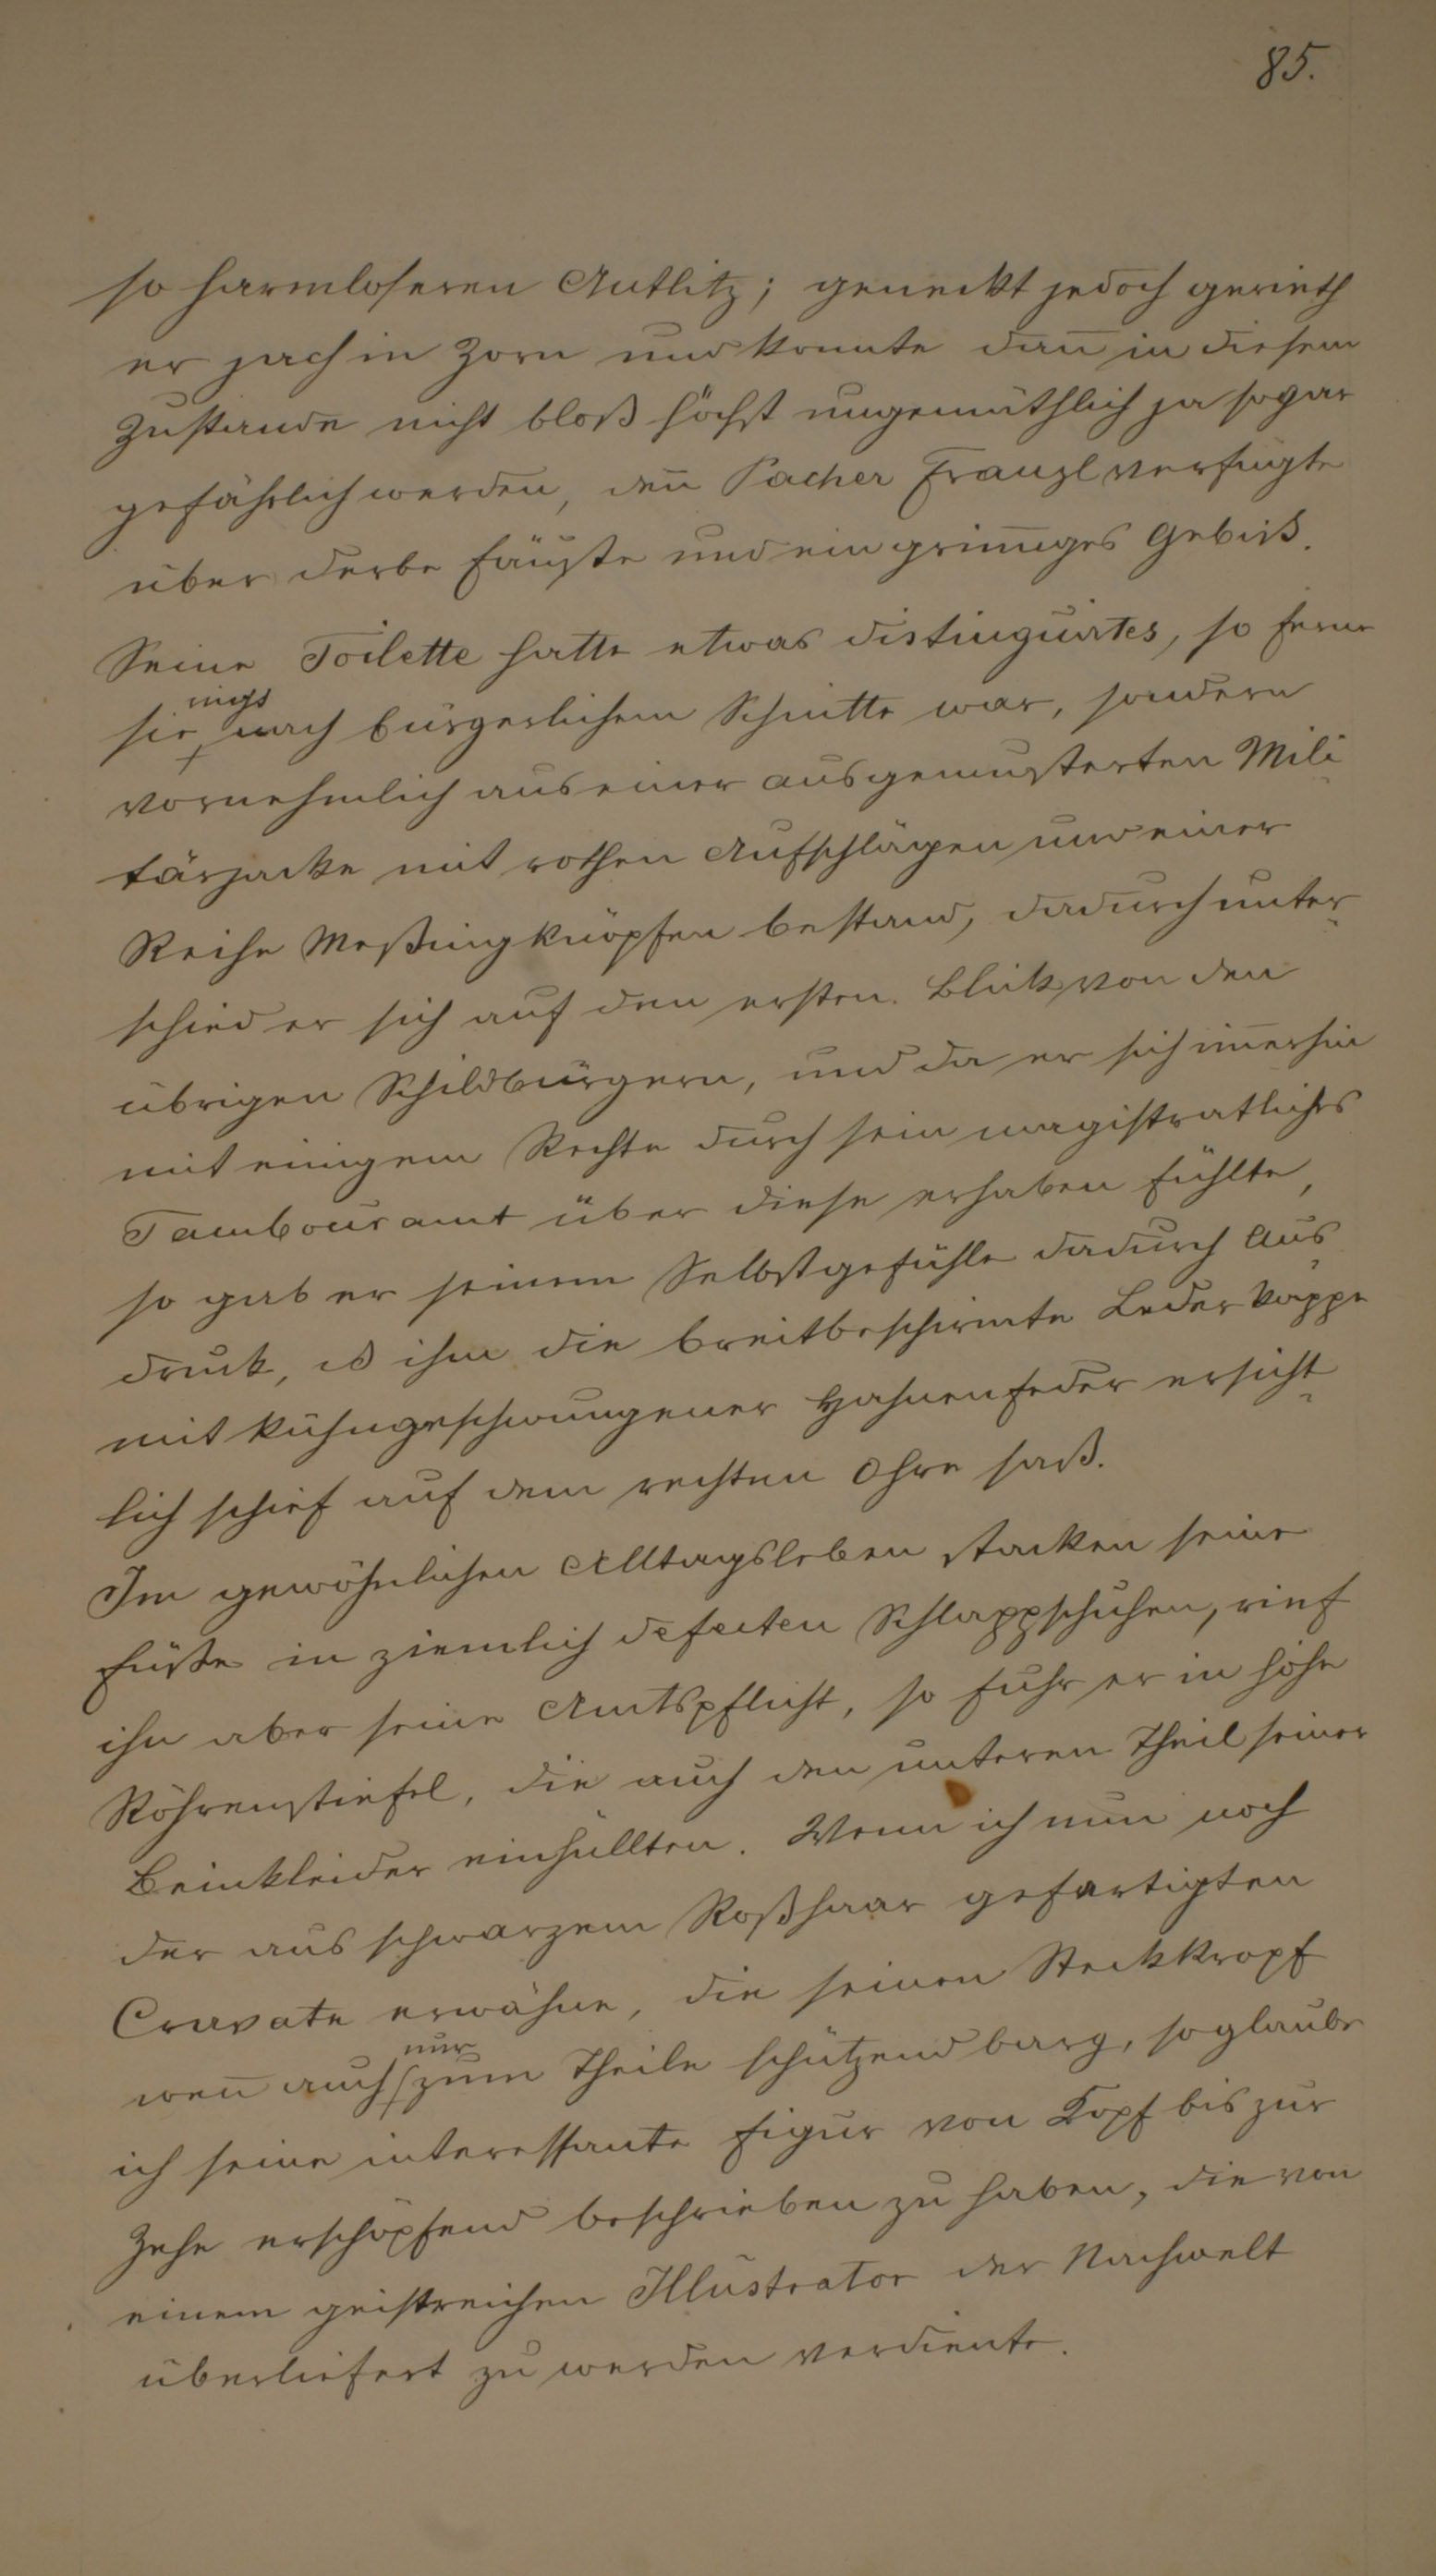 85.
so harmloseren Antlitz; geneckt jedoch gerieth
er jach in Zorn und konnte dan̄ in diesem
Zustande nicht bloß höchst ungemüthlich ja sogar
gefährlich werden, den̄ Pacher Franzl verfügte
über derbe Fäuste und ein grim̄iges Gebiß.
Seine Toilette hatte etwas distinguirtes, so ferne
nicht
sie nach bürgerlichem Schnitte war, sondern
vornehmlich aus einer ausgemusterten Mili
tärjacke mit rothen Aufschlägen und einer
Reihe Meßingknöpfen bestand, dadurch unter
schied er sich auf den ersten Blick von den
übrigen Schildbürgern, und da er sich im̄erhin
mit einigem Rechte durch sein magistratliches
Tambouramt über diese erhaben fühlte,
so gab er seinem Selbstgefühle dadurch Aus
druck, ds ihm die breitbeschirmte Lederkappe
mit kühngeschwungener Hahnenfeder ersicht
lich schief auf dem rechten Ohre saß.
Im gewöhnlichen Alltagsleben stacken seine
Füße in ziemlich defecten Schlappschuhen, rief
ihn aber seine Amtspflicht, so fuhr er in hohe
Röhrenstiefel, die auch den unteren Theil seiner
Beinkleider einhüllten. Wenn ich nun noch
der aus schwarzem Roßhaar gefertigten
Cravate erwähne, die seinen Steckkropf
nur
wen̄ auch zum Theile schützend barg, so glaube
ich seine interessante Figur von Kopf bis zur
Zehe erschöpfend beschrieben zu haben, die von
einem geistreichen Illustrator der Nachwelt
überliefert zu werden verdiente.